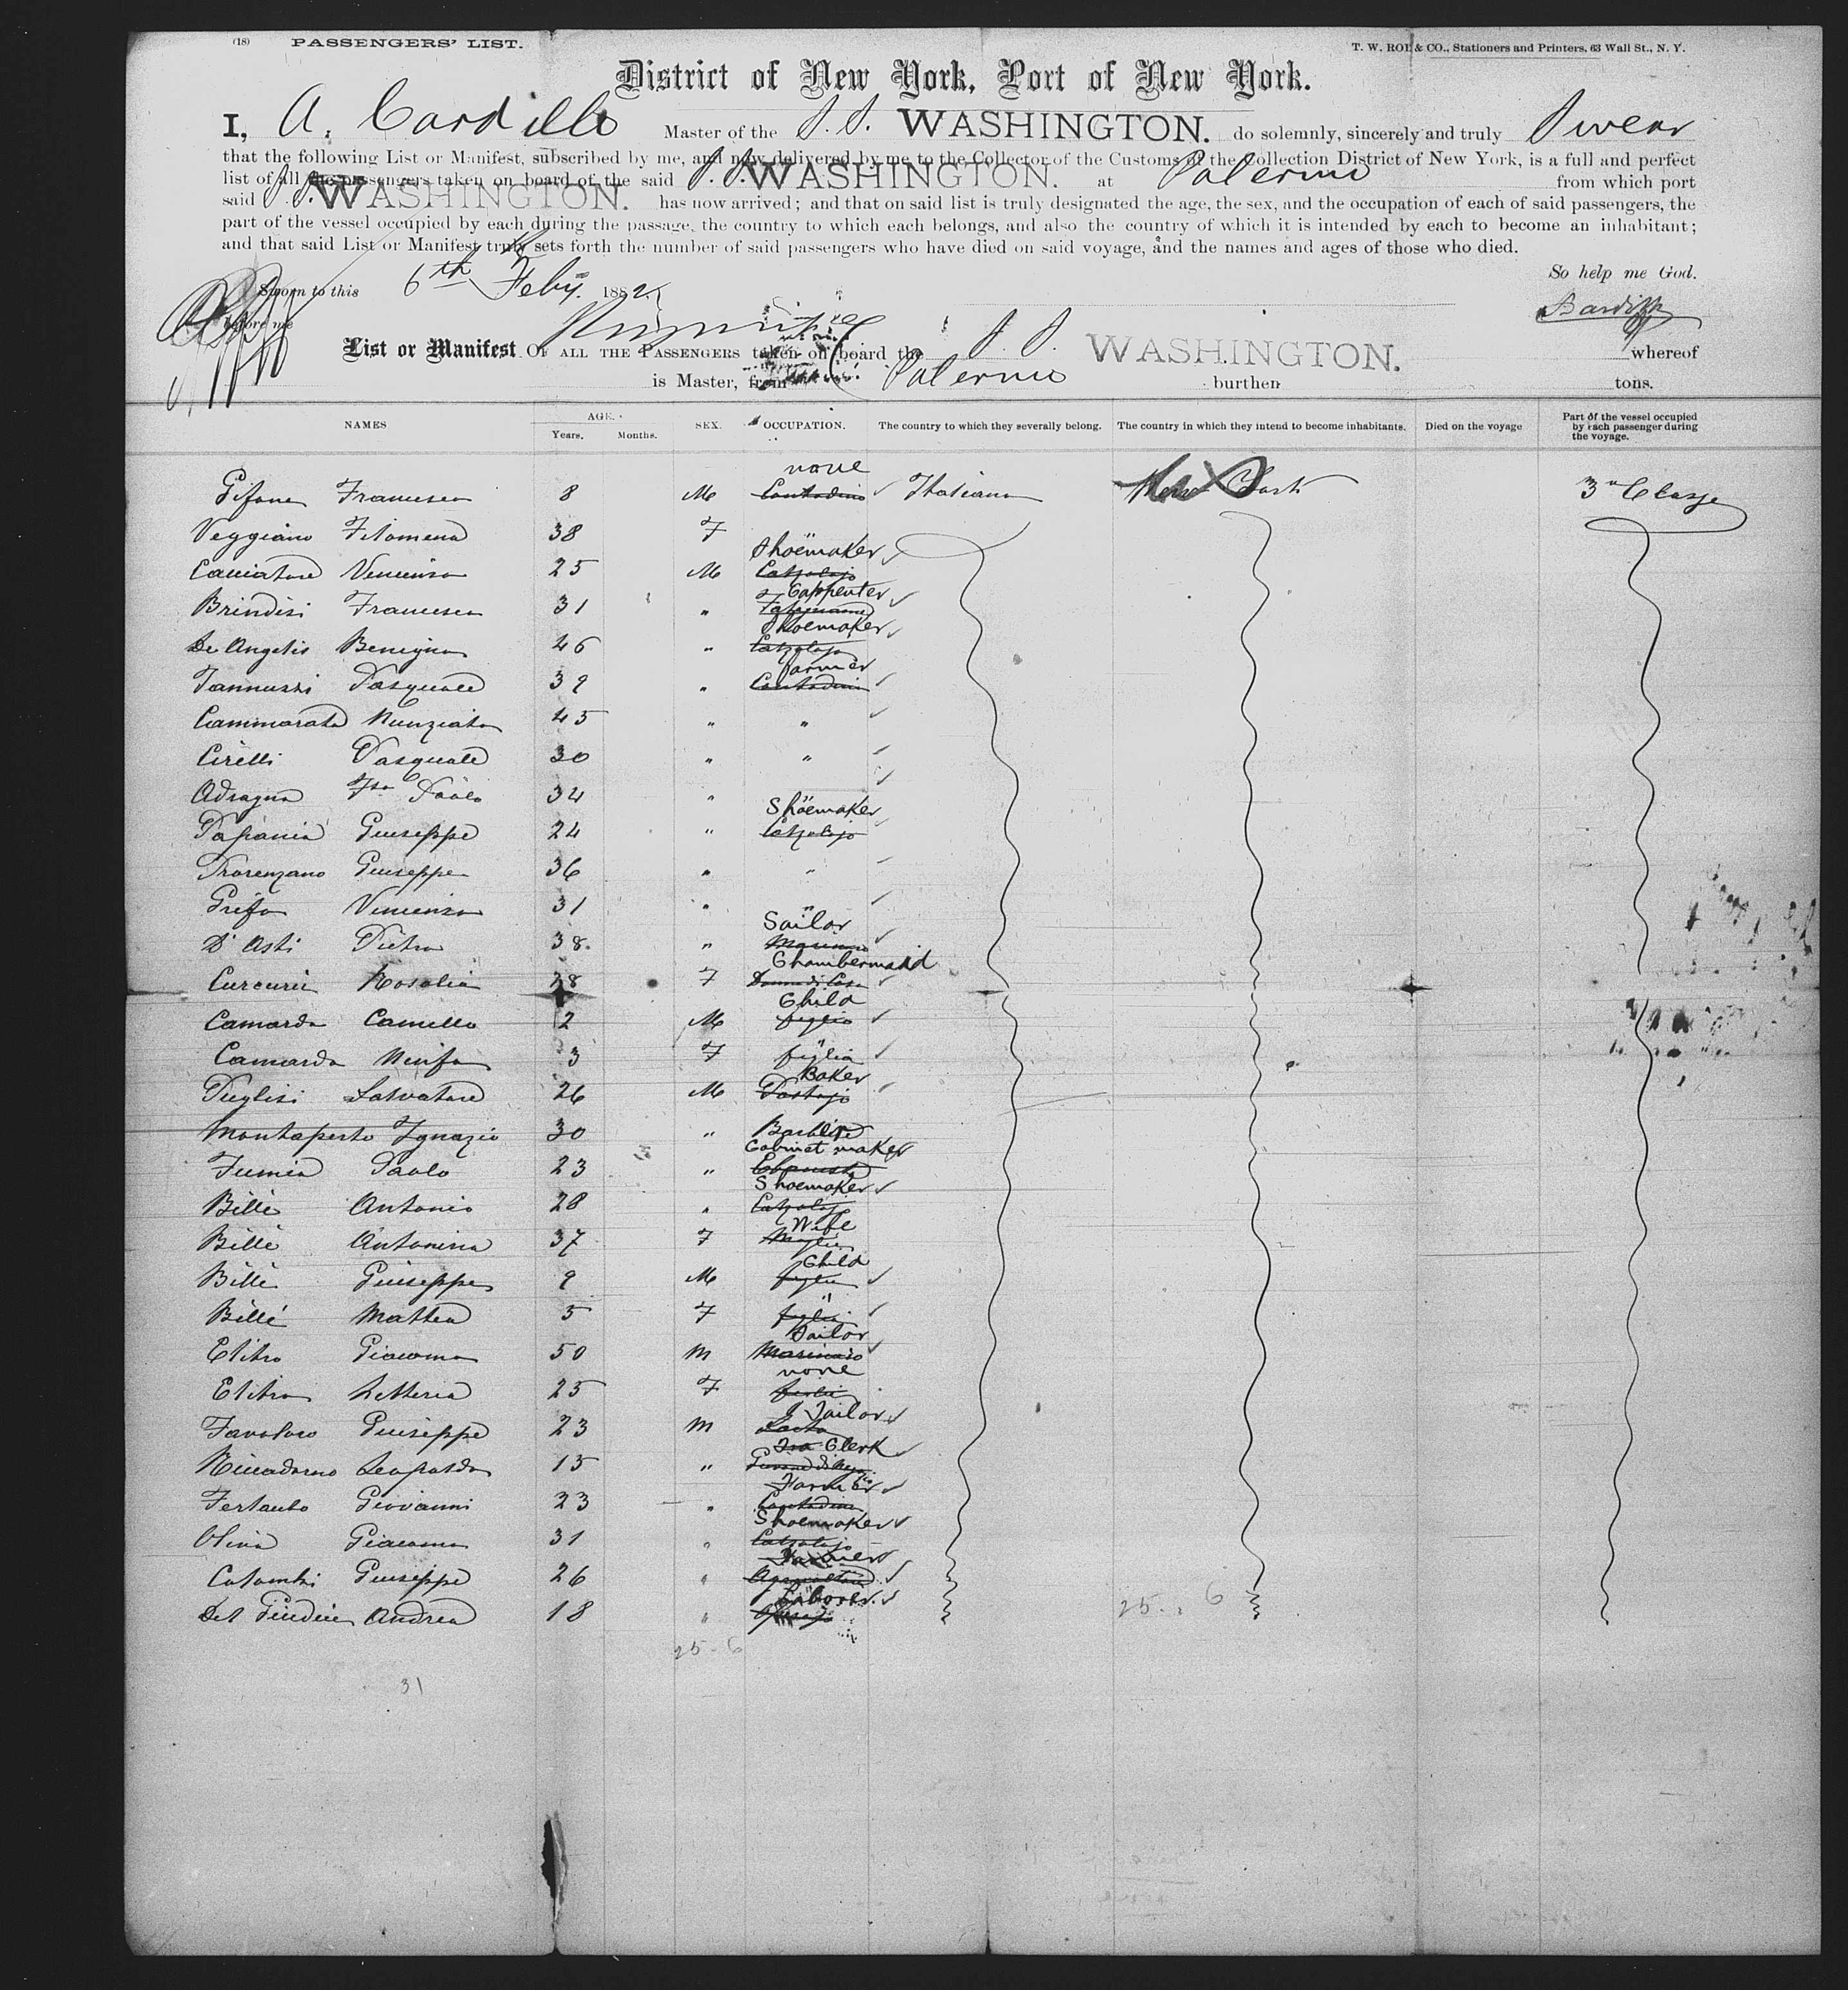 (18) PASSENGERS' LIST. T. W. ROE & CO., Stationers and Printers, 63 Wall St., N. Y.
District of New York, Port of New York.
I, A. Cardillo Master of the S. S. WASHINGTON. do solemnly, sincerely and truly Swear
that the following List or Manifest, subscribed by me, and now delivered by me to the Collector of the Customs of the Collection District of New York, is a full and perfect
list of all the passengers taken on board of the said S. S. WASHINGTON. at Palermo from which port
said S. S. WASHINGTON. has now arrived; and that on said list is truly designated the age, the sex, and the occupation of each of said passengers, the
part of the vessel occupied by each during the passage, the country to which each belongs, and also the country of which it is intended by each to become an inhabitant;
and that said List or Manifest truly sets forth the number of said passengers who have died on said voyage, and the names and ages of those who died.
So help me God.
Sworn to this 6th Feby. 1882
before me
List or Manifest OF ALL THE PASSENGERS taken on board the S. S. WASHINGTON. whereof
is Master, from Palermo burthen tons.
NAMES AGE. Years. Months. SEX. OCCUPATION. The country to which they severally belong. The country in which they intend to become inhabitants. Died on the voyage Part of the vessel occupied by each passenger during the voyage.
none
Francesco 8 M Contadino Italiana New York 3a Classe
Veggiano Filomena 38 F
Shoemaker
Cacciatore Vincenzo 25 M Calzolajo
Carpenter
Brindisi Francesco 31 "
Shoemaker
De Angelis Benigno 46 " Calzolajo
farmer
Iannuzzi Pasquale 39 " Contadino
Cammarata Nunziato 45 " "
Cirelli Pasquale 30 " "
Adragna Fco Paolo 34 "
Shoemaker
Papania Giuseppe 24 " Calzolajo
Provenzano Giuseppe 36 " "
Grifo Vincenzo 31 " "
Sailor
D'Asti Pietro 38 " Marinaro
Chambermaid
Curcurù Rosalia 28 F Donna di Casa
Child
Camarda Camillo 2 M figlio
Camarda Ninfa 3 F " figlia
Baker
Puglisi Salvatore 26 M Pastajo
Montaperto Ignazio 30 " Barbiere
Cabinet maker
Fumia Paolo 23 " Ebanista
Shoemaker
Billè Antonio 28 " Calzolajo
Wife
Billè Antonina 37 F Moglie
Child
Billè Giuseppe 9 M figlio
"
Billè Mattea 5 F figlia
Sailor
Elitro Giacomo 50 M Marinaro
none
Elitro Letteria 25 F
Tailor
Favoloro Giuseppe 23 M Sarto
Clerk
Leopoldo 15 "
Farmer
Giovanni 23 " Contadino
Shoemaker
Oliva Giacomo 31 " Calzolajo
Farmer
Colombi Giuseppe 26 " Agricoltore
Labor
Del Giudice Andrea 18 "
25 - 6 25 . . 6
31